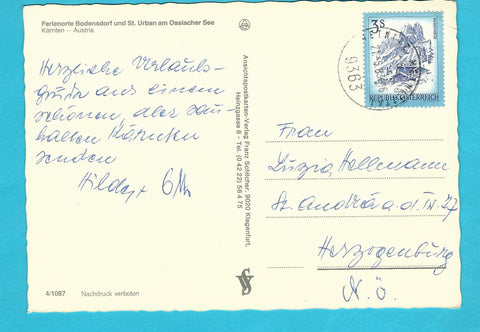 Ferienorte Bodensdorf und St. Urban am Ossiacher See
Kärnten – Austria
Herzliche Urlaubs-
grüße aus einem
schönen, aber sau-
kalten Kärnten
senden
Hilde
4/1087 Nachdruck verboten
Ansichtspostkarten-Verlag Franz Schilcher, 9020 Klagenfurt,
Heinzgasse 8 - Tel. (0 42 22) 56 4 75
3 S
REPUBLIK ÖSTERREICH
9363
Frau
Luzia Hellmann
St. Andrä a. d. Tr. 27
Herzogenburg
N.Ö.